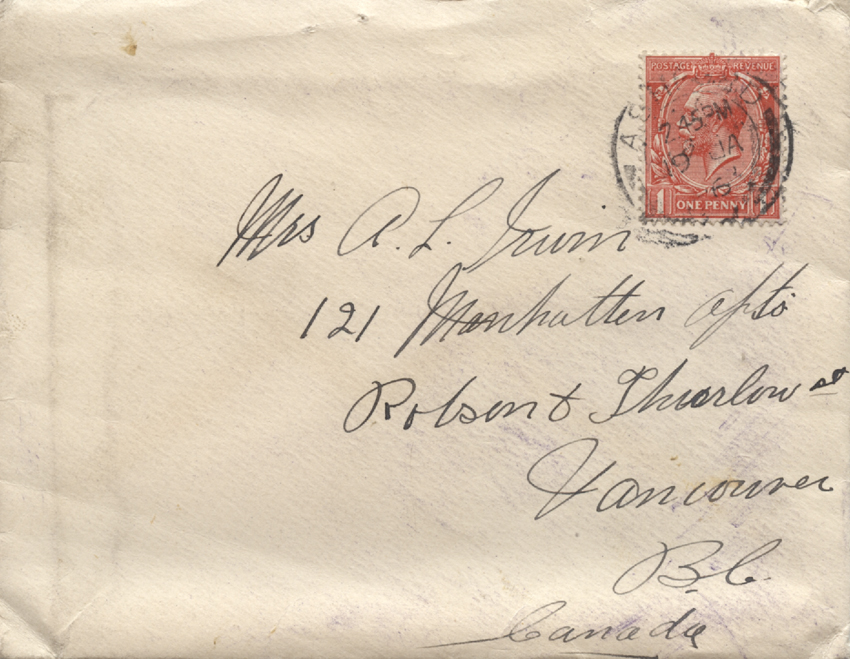 POSTAGE REVENUE
2.45PM
JA
16
1 ONE PENNY 1
Mrs A. L. Irwin
121 Manhatten apts
Robson & Thurlow st
Vancouver
B.C.
Canada